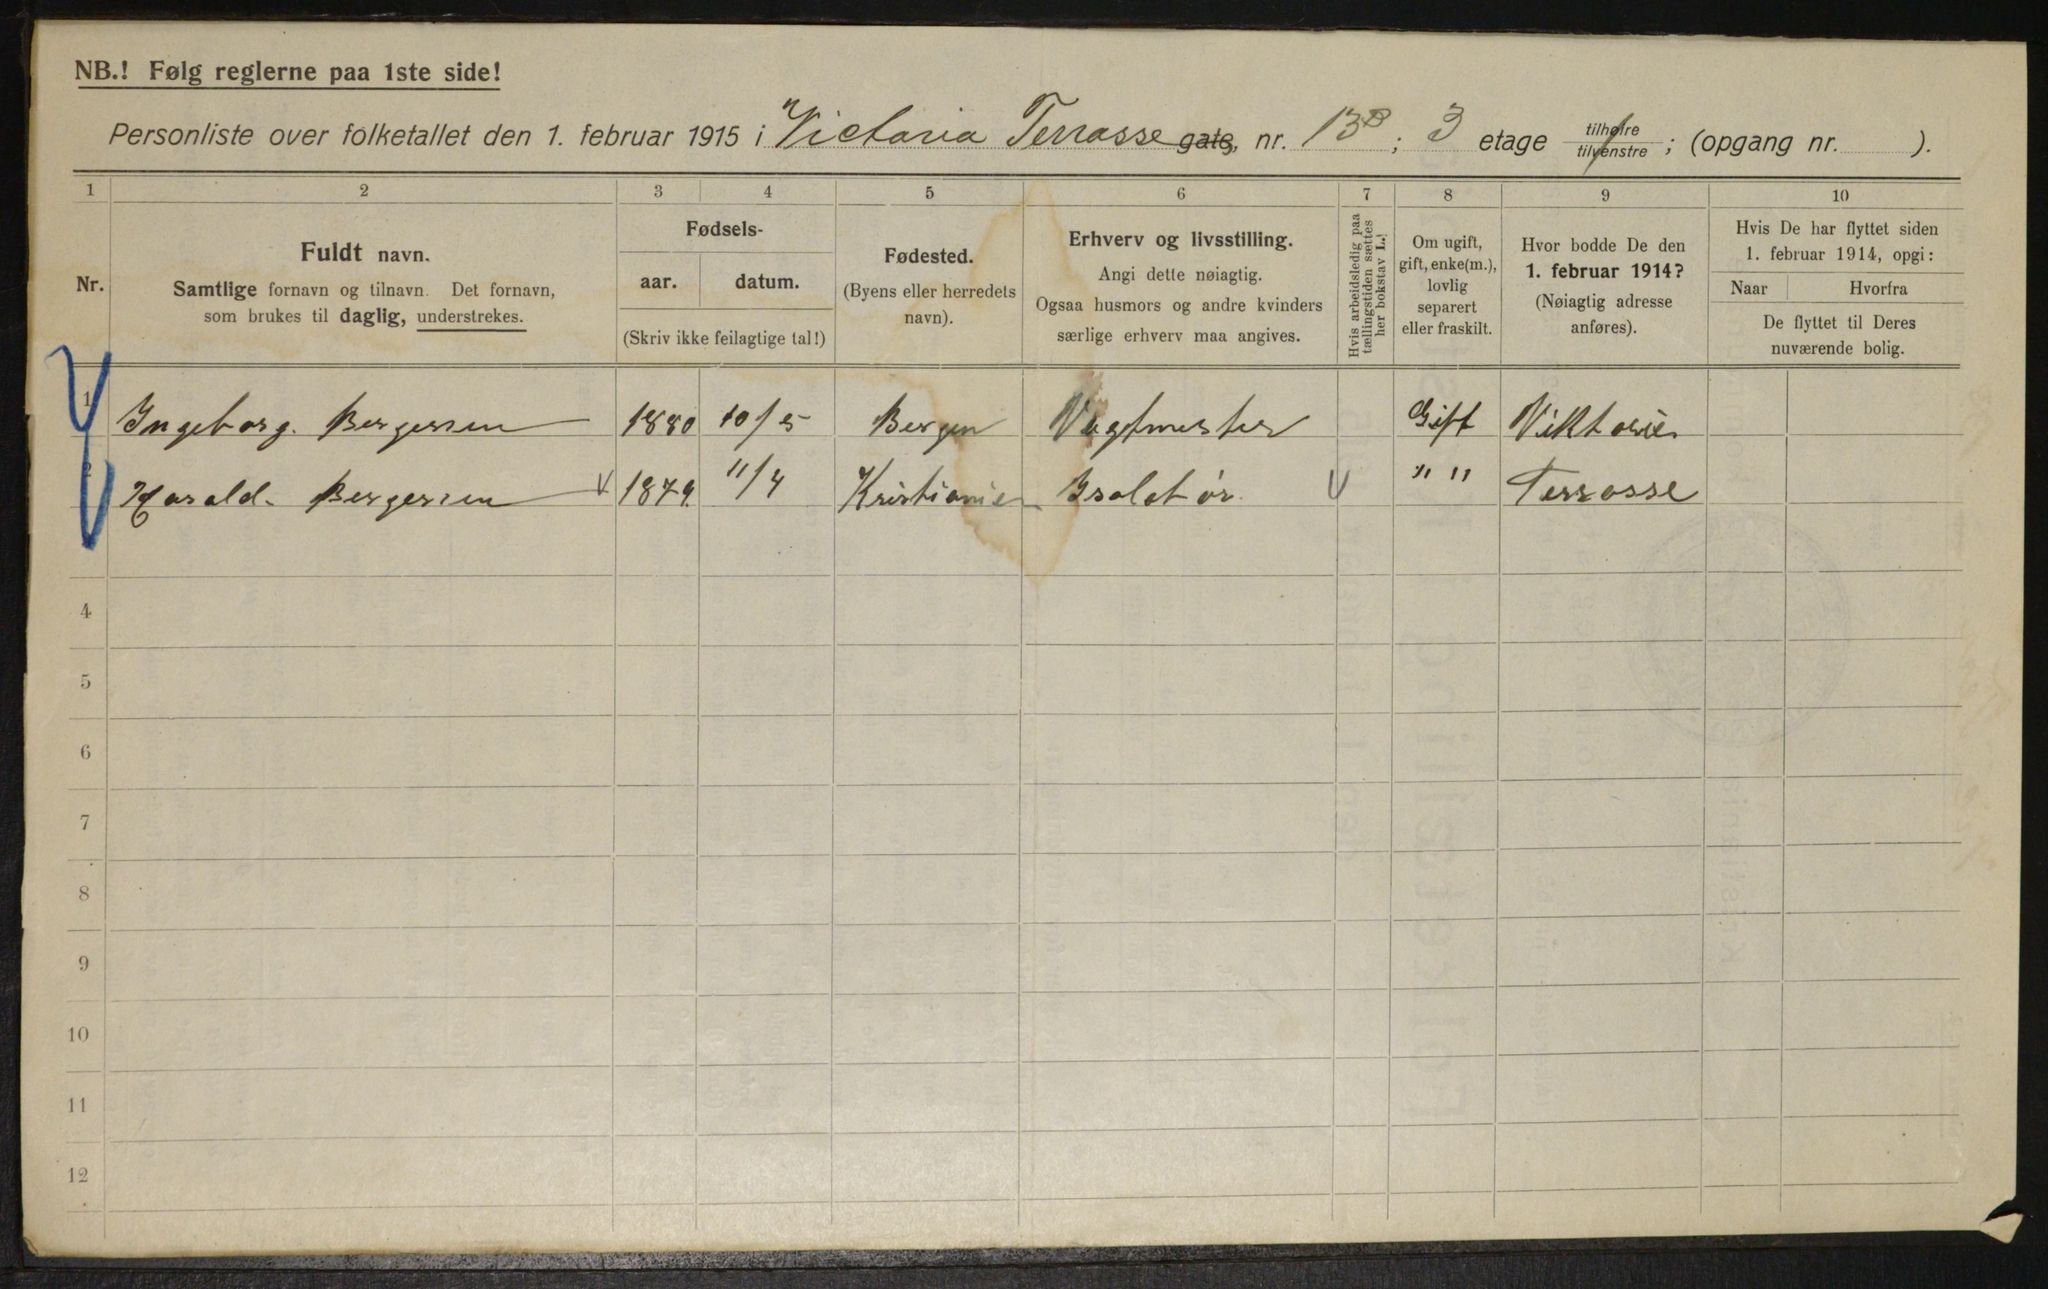 NB.! Følg reglerne paa 1ste side!
Personliste over folketallet den 1. februar 1915 i Victoria Terrasse gate, nr. 13B; 3 etage tilhøire tilvenstre; (opgang nr. ).
1 2 3 4 5 6 7 8 9 10
Nr.
Fuldt navn.
Samtlige fornavn og tilnavn. Det fornavn,
som brukes til daglig, understrekes.
Fødsels-
aar. datum.
(Skriv ikke feilagtige tal!)
Fødested.
(Byens eller herredets
navn).
Erhverv og livsstilling.
Angi dette nøiagtig.
Ogsaa husmors og andre kvinders
særlige erhverv maa angives.
Hvis arbeidsledig paa
tællingstiden sættes
her bokstav L.!
Om ugift,
gift, enke(m.),
lovlig
separert
eller fraskilt.
Hvor bodde De den
1. februar 1914?
(Nøiagtig adresse
anføres).
Hvis De har flyttet siden
1. februar 1914, opgi:
Naar Hvorfra
De flyttet til Deres
nuværende bolig.
1 Ingeborg. Bergersen 1880 10/5 Bergen Vagtmester Gift Viktoria
2 Harald. Bergersen 1879. 11/4 Kristiania Isolatør. " " Terrasse
4
5
6
7
8
9
10
11
12